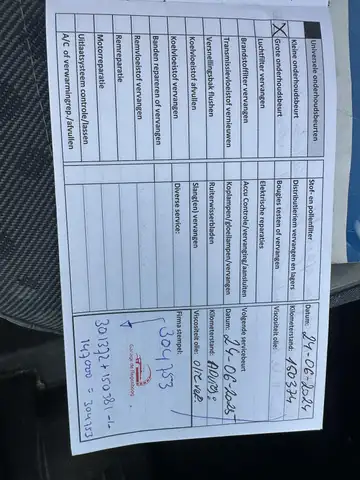 Universele onderhoudsbeurten
Kleine onderhoudsbeurt
Grote onderhoudsbeurt
X
Luchtfilter vervangen
Brandstoffilter vervangen
Transmissievloeistof vernieuwen
Versnellingsbak flushen
Koelvloeistof afvullen
Koelvloeistof vervangen
Banden repareren of vervangen
Remvloeistof vervangen
Remreparatie
Motorreparatie
Uitlaatsysteem controle/lassen
A/C of verwarmingrep./afvullen
Stof- en pollenfilter
Distributieriem vervangen en lagers
Bougies testen of vervangen
Elektrische reparaties
Accu Controle/vervanging/aansluiten
Koplampen/gloeilampen/vervangen
Ruiterwisserbladen
Slang(en) vervangen
Diverse service:
Datum: 24-06-2024
Kilometerstand: 150374
Viscositeit olie:
Volgende servicebeurt
Datum: 24-06-2025
Kilometerstand: Advies:
Viscositeit olie:
Firma stempel:
304753